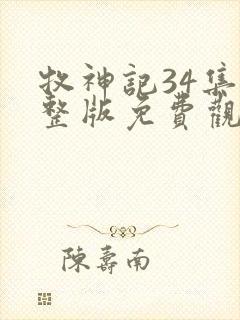 牧神記34集
整版免費觀
陳壽南